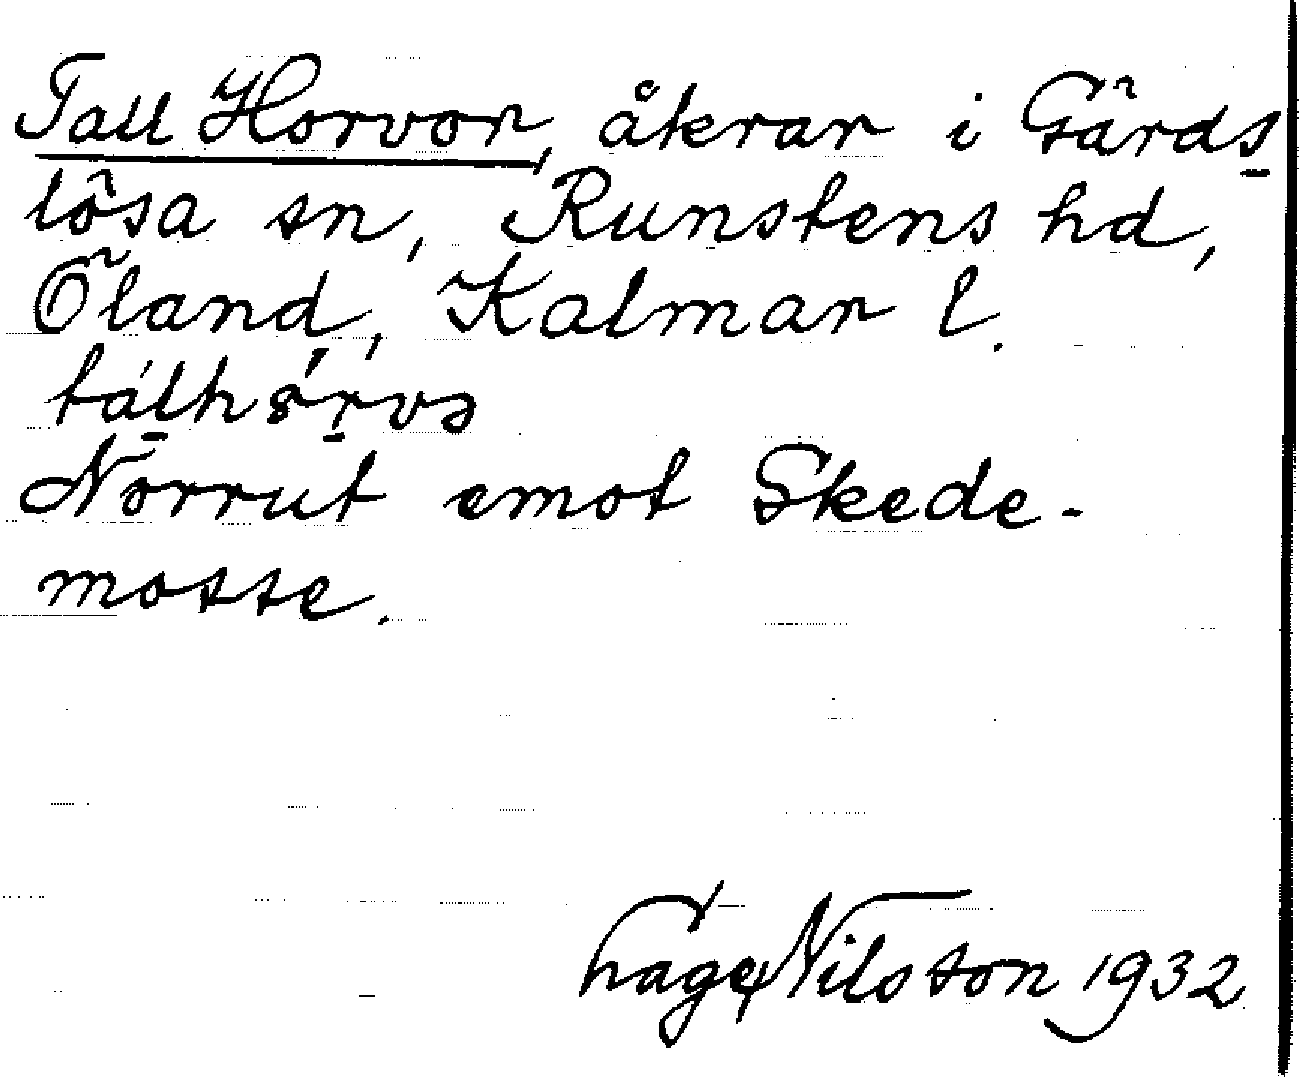 Tall Horvor, åkrar i Gärds
lösa sn, Runstens hd,
Öland, Kalmar l.
Norrut emot Skede-
mosse.
Hage Nilsson 1932